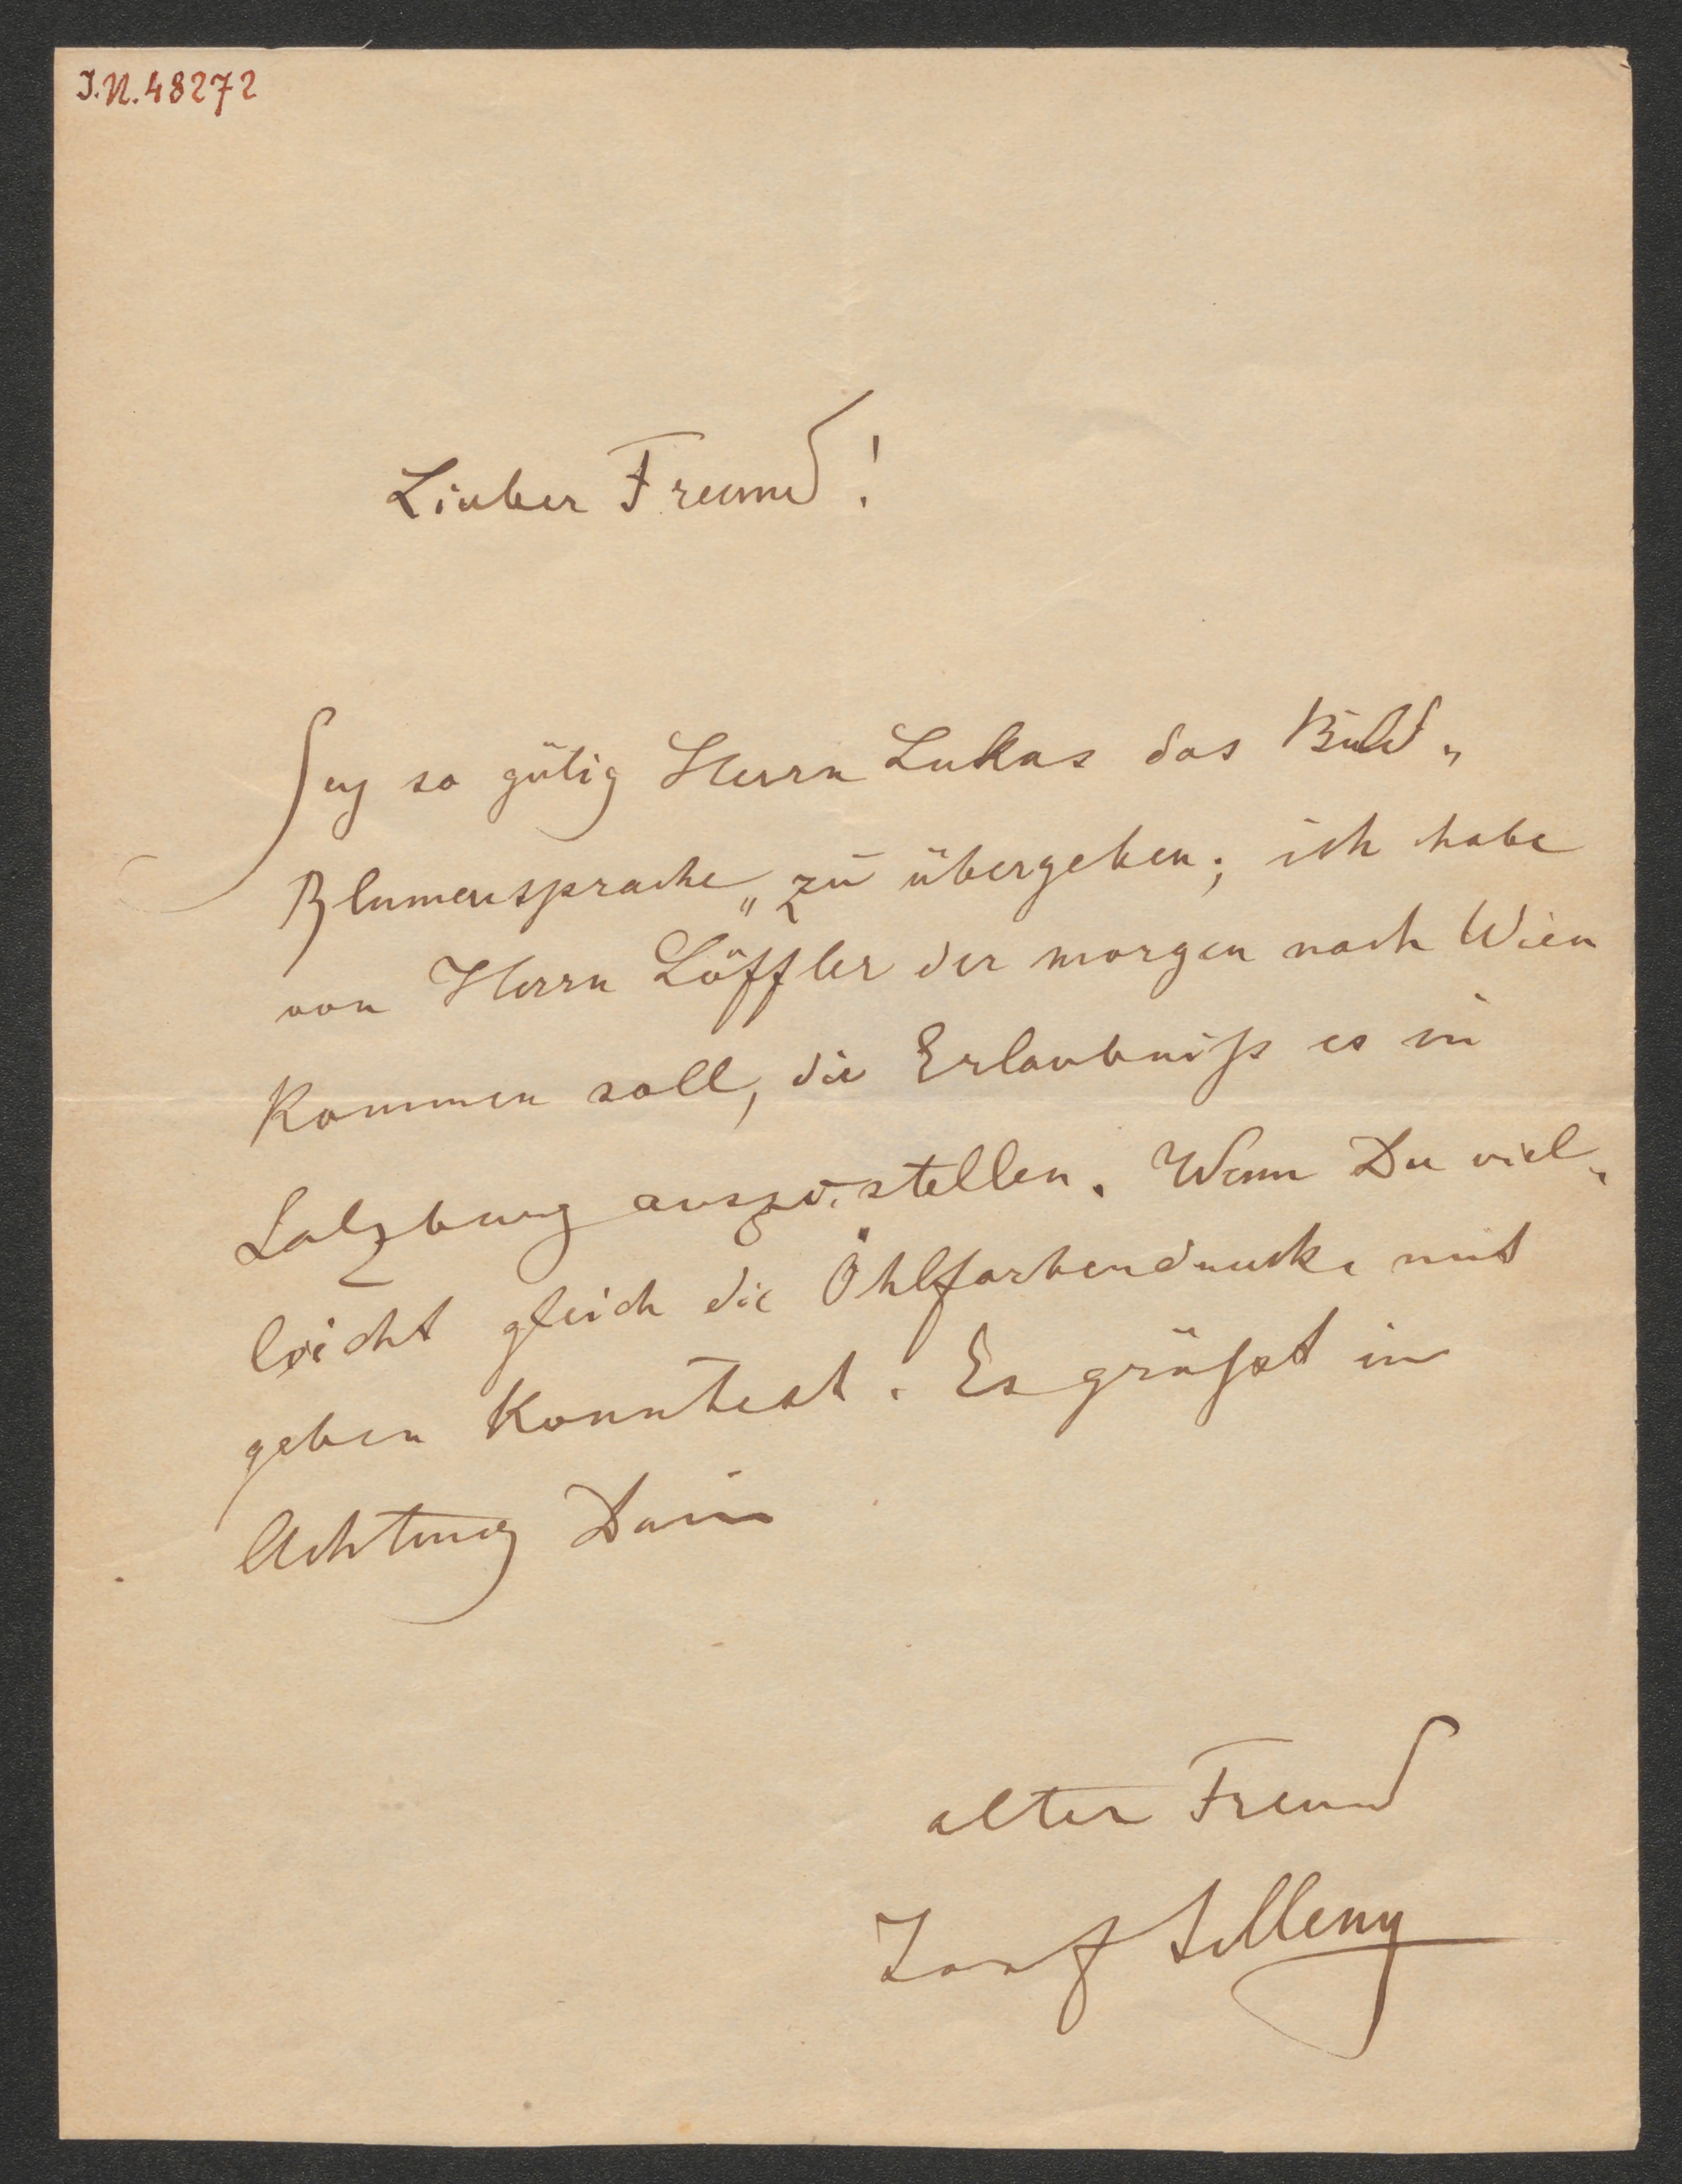 I.N. 48272
Lieber Freund!
Sey so gütig Herrn Lukas das Bild „
Blumensprache „ zu übergeben; ich habe
von Herrn Löffler der morgen nach Wien
kommen soll, die Erlaubniß es in
Salzburg auszustellen. Wenn Du viel„
leicht gleich die Öhlfarbendrucke mit
geben konntest. Es grüßt in
Achtung Dein
alter Freund
Josef Selleny